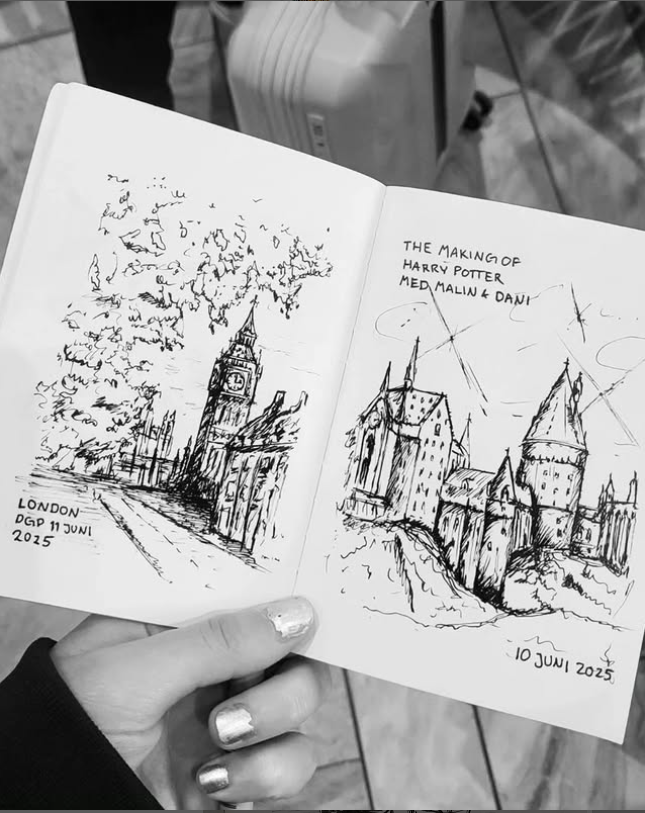 LONDON
DGP 11 JUNI
2025
THE MAKING OF
HARRY POTTER
MED MALIN & DANI
10 JUNI 2025